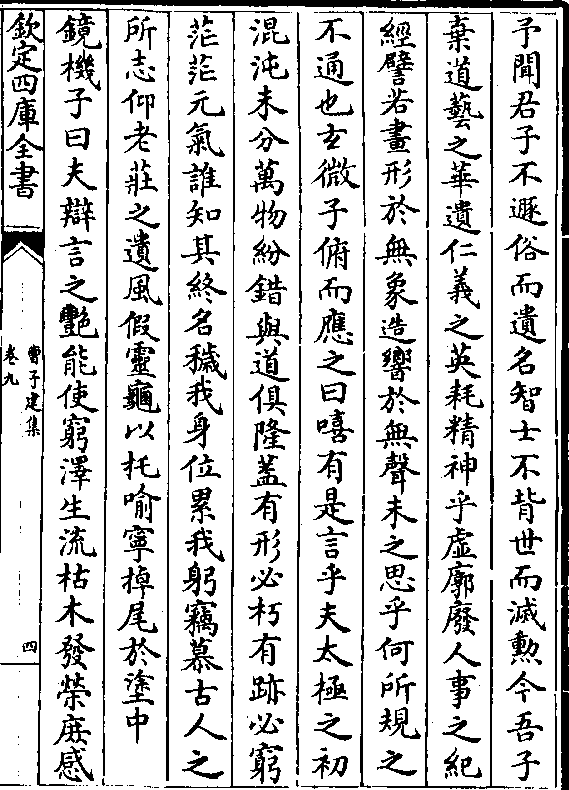 予聞君子不遯俗而遺名智士不背世而滅勲今吾子
棄道藝之華遺仁義之英耗精神乎虚廓廢人事之紀
經譬若畫形於無象造響於無聲未之思乎何所規之
不通也玄微子俯而應之曰嘻有是言乎夫太極之初
混沌未分萬物紛錯與道俱隆盖有形必朽有跡必窮
茫茫元氣誰知其終名穢我身位累我躬竊慕古人之
所志仰老莊之遺風假靈龜以托喻寧掉尾於塗中
鏡機子曰夫辯言之艷能使窮澤生流枯木發榮庶感
欽定四庫全書
曹子建集
卷九
四